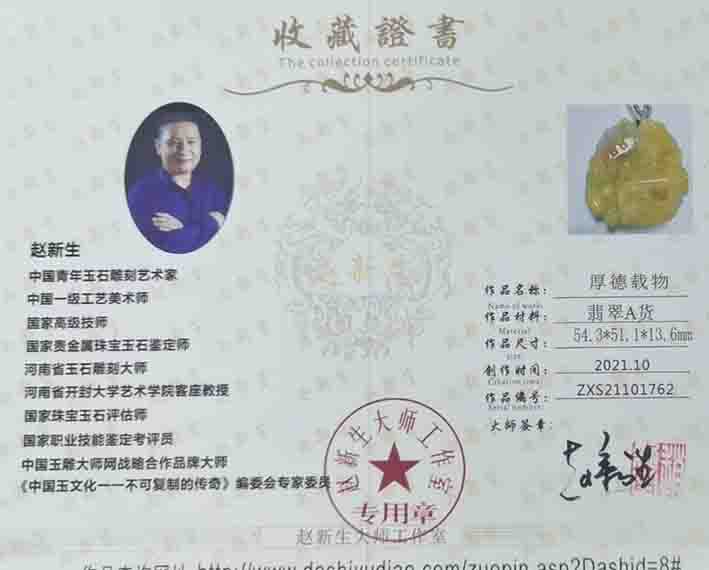 收藏證書
The collection certificate
赵新生
中国青年玉石雕刻艺术家
中国一级工艺美术师
国家高级技师
国家贵金属珠宝玉石鉴定师
河南省玉石雕刻大师
河南省开封大学艺术学院客座教授
国家珠宝玉石评估师
国家职业技能鉴定考评员
中国玉雕大师网战略合作品牌大师
《中国玉文化一一不可复制的传奇》编委会专家委员
作品名称: 厚德载物
Name of works
作品材料: 翡翠A货
Material
作品尺寸: 54.3*51.1*13.6mm
size
创作时间: 2021.10
Creation time
作品编号: ZXS21101762
Serial number
大师签章:
赵新生
赵新生大师工作室
专用章
赵新生大师工作室
http://www.dashiyudiao.com/zuopin.asp?Dashid=8#